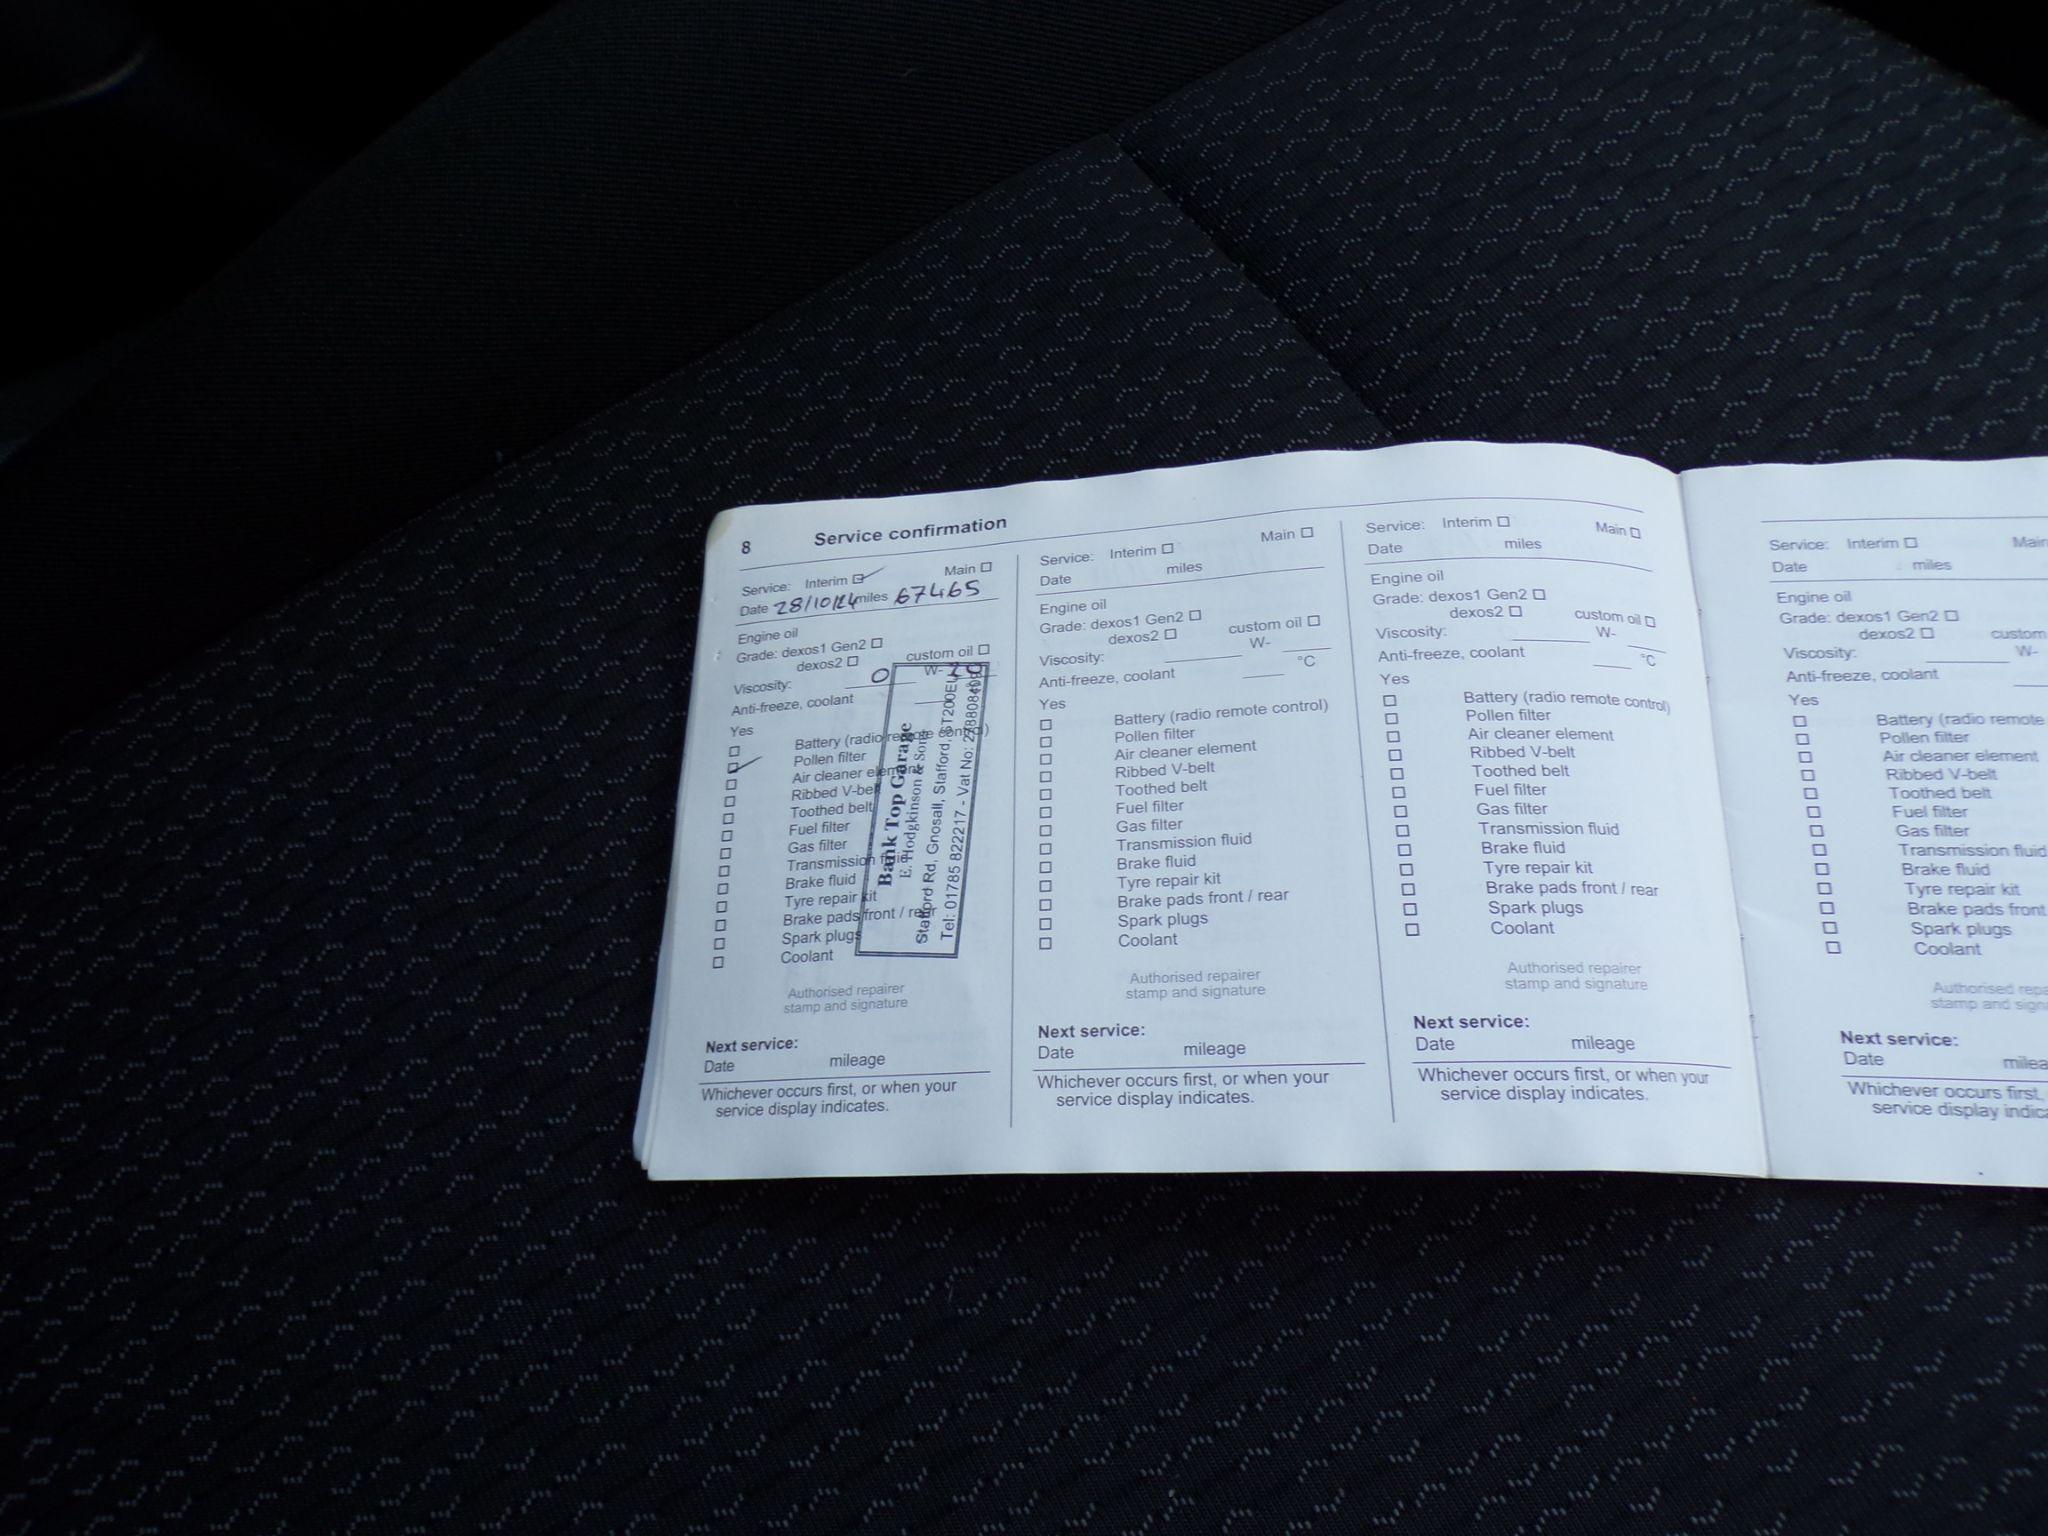 8 Service confirmation
Service: Interim ☑ Main ☐
Date 28/10/24 miles 67465
Engine oil
Grade: dexos1 Gen2 ☐
dexos2 ☐ custom oil ☐
Viscosity: 0 W- 20
Anti-freeze, coolant
Yes
☐ Battery (radio remote control)
☑ Pollen filter
☐ Air cleaner element
☐ Ribbed V-belt
☐ Toothed belt
☐ Fuel filter
☐ Gas filter
☐ Transmission fluid
☐ Brake fluid
☐ Tyre repair kit
☐ Brake pads front / rear
☐ Spark plugs
☐ Coolant
Bank Top Garage
E. Hodgkinson & Son
Stafford Rd, Gnosall, Stafford, ST200EU
Tel: 01785 822217 - Vat No:
Authorised repairer
stamp and signature
Next service:
Date mileage
Whichever occurs first, or when your
service display indicates.
Service: Interim ☐ Main ☐
Date miles
Engine oil
Grade: dexos1 Gen2 ☐
dexos2 ☐ custom oil ☐
Viscosity: W-
Anti-freeze, coolant °C
Yes
☐ Battery (radio remote control)
☐ Pollen filter
☐ Air cleaner element
☐ Ribbed V-belt
☐ Toothed belt
☐ Fuel filter
☐ Gas filter
☐ Transmission fluid
☐ Brake fluid
☐ Tyre repair kit
☐ Brake pads front / rear
☐ Spark plugs
☐ Coolant
Authorised repairer
stamp and signature
Next service:
Date mileage
Whichever occurs first, or when your
service display indicates.
Service: Interim ☐ Main ☐
Date miles
Engine oil
Grade: dexos1 Gen2 ☐
dexos2 ☐ custom oil ☐
Viscosity: W-
Anti-freeze, coolant °C
Yes
☐ Battery (radio remote control)
☐ Pollen filter
☐ Air cleaner element
☐ Ribbed V-belt
☐ Toothed belt
☐ Fuel filter
☐ Gas filter
☐ Transmission fluid
☐ Brake fluid
☐ Tyre repair kit
☐ Brake pads front / rear
☐ Spark plugs
☐ Coolant
Authorised repairer
stamp and signature
Next service:
Date mileage
Whichever occurs first, or when your
service display indicates.
Service: Interim ☐ Main
Date miles
Engine oil
Grade: dexos1 Gen2 ☐
dexos2 ☐ custom
Viscosity: W-
Anti-freeze, coolant
Yes
☐ Battery (radio remote
☐ Pollen filter
☐ Air cleaner element
☐ Ribbed V-belt
☐ Toothed belt
☐ Fuel filter
☐ Gas filter
☐ Transmission fluid
☐ Brake fluid
☐ Tyre repair kit
☐ Brake pads front
☐ Spark plugs
☐ Coolant
Authorised repa
stamp and sign
Next service:
Date milea
Whichever occurs first,
service display indica